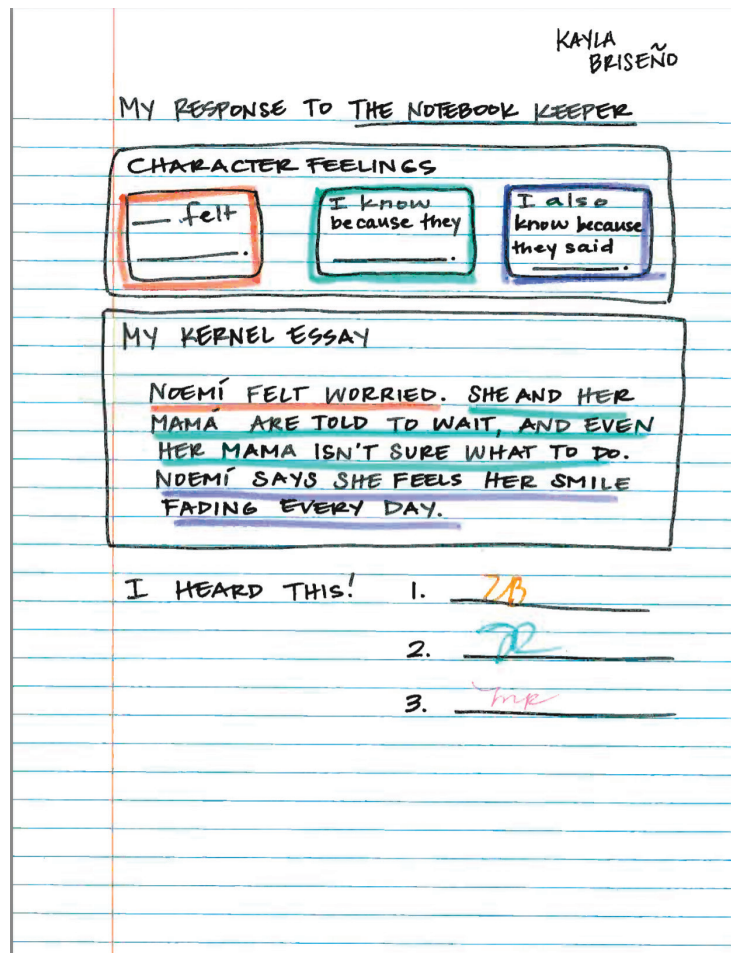 KAYLA
BRISEÑO
MY RESPONSE TO THE NOTEBOOK KEEPER
CHARACTER FEELINGS
___ felt
_______.
I know
because they
_______.
I also
know because
they said
_______.
MY KERNEL ESSAY
NOEMÍ FELT WORRIED. SHE AND HER
MAMÁ ARE TOLD TO WAIT, AND EVEN
HER MAMA ISN'T SURE WHAT TO DO.
NOEMÍ SAYS SHE FEELS HER SMILE
FADING EVERY DAY.
I HEARD THIS! 1.
2.
3.